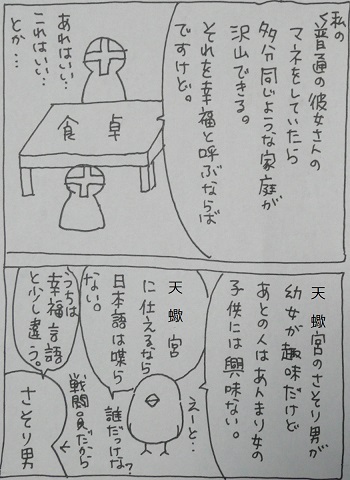 私の
普通の彼女さんの
マネをしていたら
多分同じような家庭が
沢山できる。
それを幸福と呼ぶならば
ですけど。
あれはいい…
これはいい…
とか…
食卓
天蠍宮のさそり男が
幼女が趣味だけど
あとの人はあんまり女の
子供には興味ない。
えーと…
天蠍宮
に仕えるなら
日本語は喋ら
ない。
誰だっけな?
うちは
幸福言語
と少し違う。
戦闘員だから
さそり男